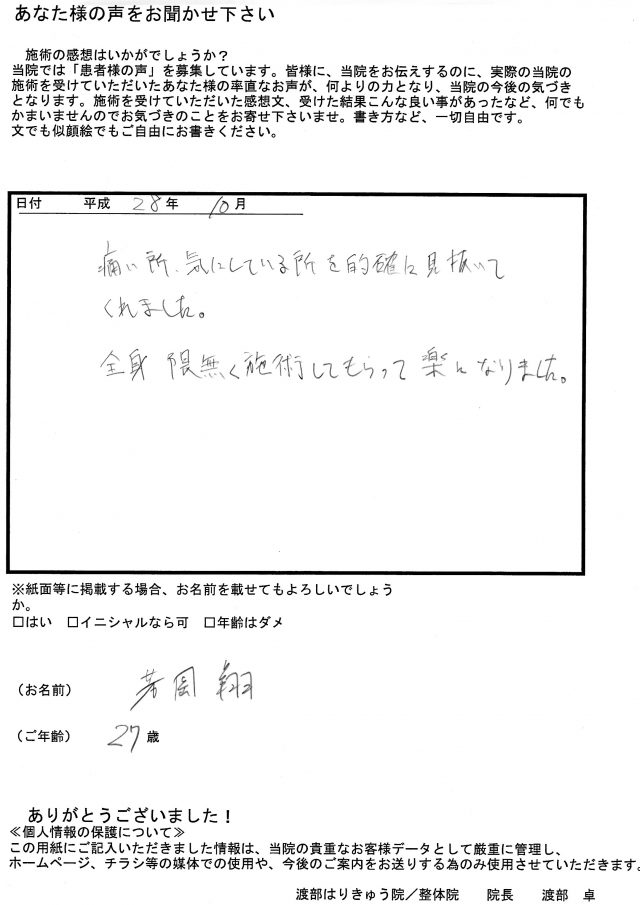 あなた様の声をお聞かせ下さい
施術の感想はいかがでしょうか？
当院では「患者様の声」を募集しています。皆様に、当院をお伝えするのに、実際の当院の
施術を受けていただいたあなた様の率直なお声が、何よりの力となり、当院の今後の気づき
となります。施術を受けていただいた感想文、受けた結果こんな良い事があったなど、何でも
かまいませんのでお気づきのことをお寄せ下さいませ。書き方など、一切自由です。
文でも似顔絵でもご自由にお書きください。
日付　平成 28年 10月
痛い所、気にしている所を的確に見抜いて
くれました。
全身 隈無く施術してもらって 楽になりました。
※紙面等に掲載する場合、お名前を載せてもよろしいでしょう
か。
□はい　□イニシャルなら可　□年齢はダメ
（お名前）　芳岡 翔
（ご年齢）　27歳
ありがとうございました！
≪個人情報の保護について≫
この用紙にご記入いただきました情報は、当院の貴重なお客様データとして厳重に管理し、
ホームページ、チラシ等の媒体での使用や、今後のご案内をお送りする為のみ使用させていただきます。
渡部はりきゅう院／整体院　院長　渡部　卓